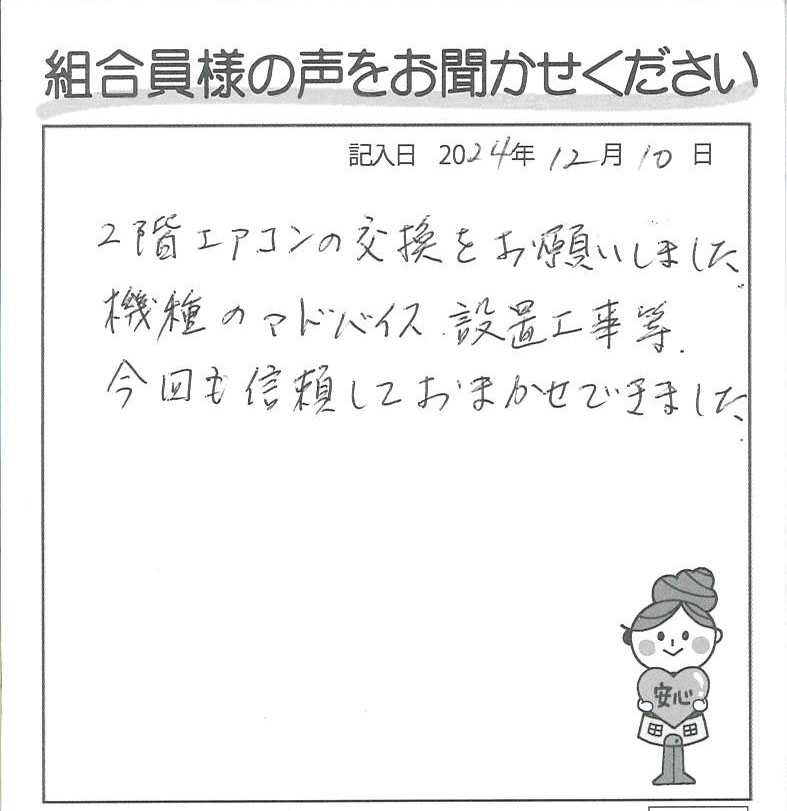 組合員様の声をお聞かせください
記入日 2024年 12月 10日
2階エアコンの交換をお願いしました。
機種のアドバイス、設置工事等、
今回も信頼しておまかせできました。
安心